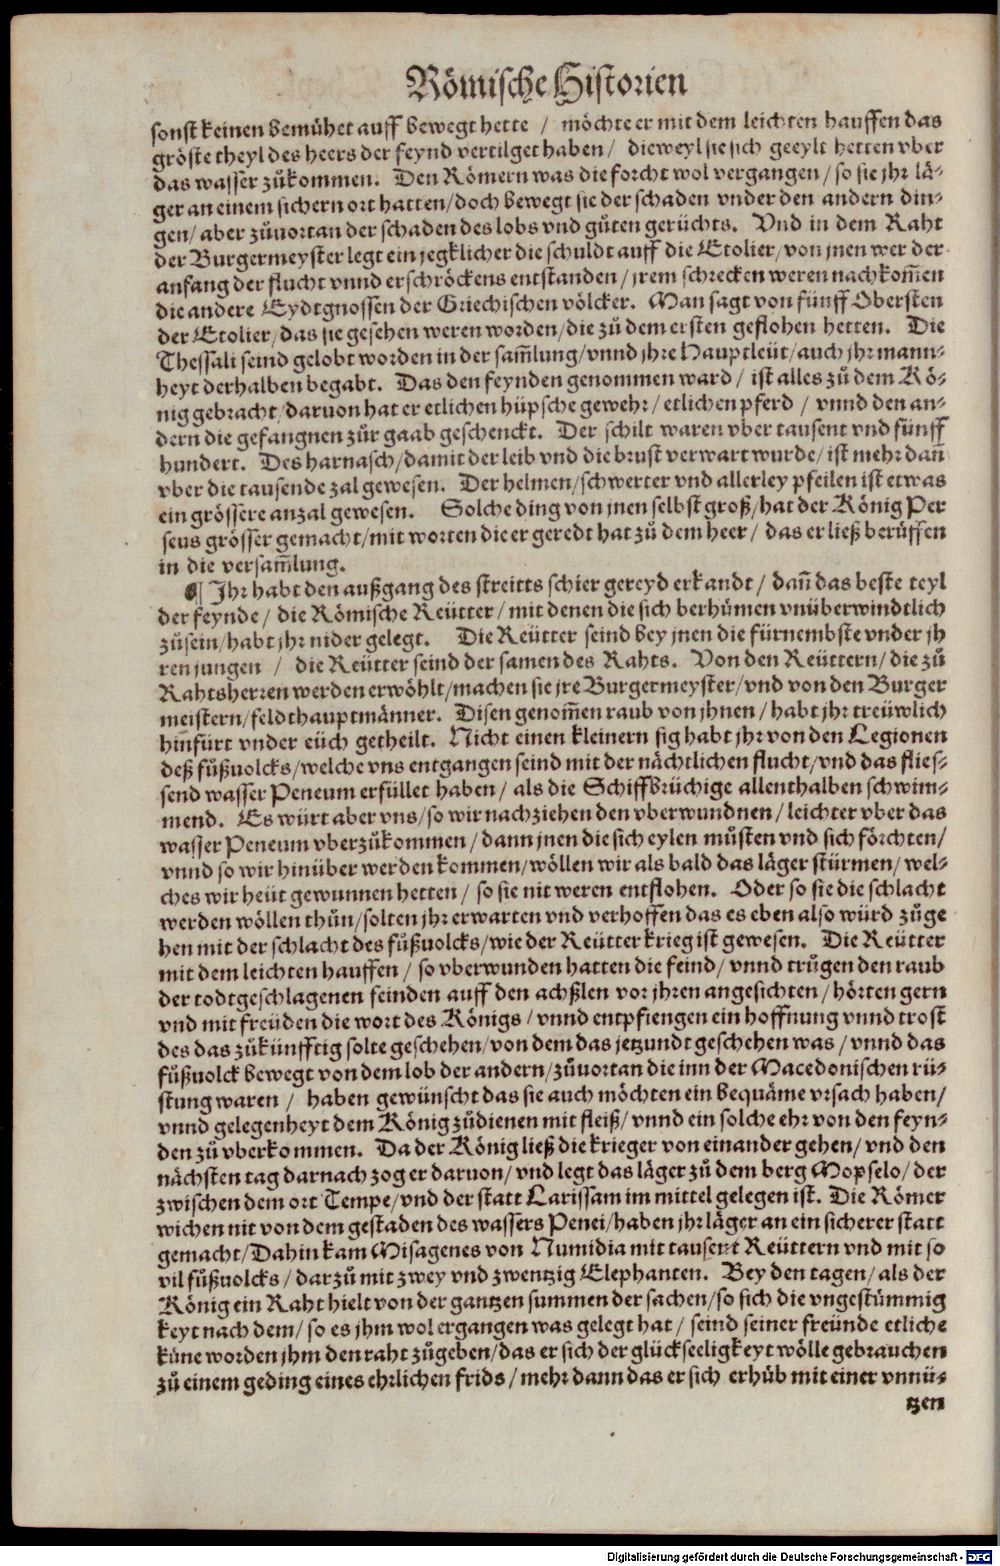 Römische Historien
sonst keinen bemühet auff bewegt hette / möchte er mit dem leichten hauffen das
gröste theyl des heers der feynd vertilget haben / dieweyl sie sich geeylt hetten vber
das wasser zůkommen. Den Römern was die forcht wol vergangen / so sie jhr lä-
ger an einem sichern ort hatten / doch bewegt sie der schaden vnder den andern din-
gen / aber zůuortan der schaden des lobs vnd gůten gerüchts. Vnd in dem Raht
der Burgermeyster legt ein jegklicher die schuldt auff die Etolier / von jnen wer der
anfang der flucht vnnd erschröckens entstanden / jrem schrecken weren nachkom̃en
die andere Eydtgnossen der Griechischen völcker. Man sagt von fünff Obersten
der Etolier / das sie gesehen weren worden / die zů dem ersten geflohen hetten. Die
Thessali seind gelobt worden in der sam̃lung / vnnd jhre Hauptleüt / auch jhr mann-
heyt derhalben begabt. Das den feynden genommen ward / ist alles zů dem Kö-
nig gebracht / daruon hat er etlichen hüpsche gewehr / etlichen pferd / vnnd den an-
dern die gefangnen zůr gaab geschenckt. Der schilt waren vber tausent vnd fünff
hundert. Des harnasch / damit der leib vnd die brust verwart wurde / ist mehr dañ
vber die tausende zal gewesen. Der helmen / schwerter vnd allerley pfeilen ist etwas
ein grössere anzal gewesen. Solche ding von jnen selbst groß / hat der König Per
seus grösser gemacht / mit worten die er geredt hat zů dem heer / das er ließ berůffen
in die versam̃lung.
¶ Jhr habt den außgang des streitts schier gereyd erkandt / dañ das beste teyl
der feynde / die Römische Reütter / mit denen die sich berhümen vnüberwindtlich
zůsein / habt jhr nider gelegt. Die Reütter seind bey jnen die fürnembste vnder jh
ren jungen / die Reütter seind der samen des Rahts. Von den Reüttern / die zů
Rahtsherren werden erwöhlt / machen sie jre Burgermeyster / vnd von den Burger
meistern / feldthauptmänner. Disen genom̃en raub von jhnen / habt jhr treüwlich
hinfürt vnder eüch getheilt. Nicht einen kleinern sig habt jhr von den Legionen
deß fůßuolcks / welche vns entgangen seind mit der nächtlichen flucht / vnd das flies-
send wasser Peneum erfüllet haben / als die Schiffbrüchige allenthalben schwim-
mend. Es würt aber vns / so wir nachziehen den vberwundnen / leichter vber das
wasser Peneum vberzůkommen / dann jnen die sich eylen můsten vnd sich förchten /
vnnd so wir hinüber werden kommen / wöllen wir als bald das läger stürmen / wel-
ches wir heüt gewunnen hetten / so sie nit weren entflohen. Oder so sie die schlacht
werden wöllen thůn / solten jhr erwarten vnd verhoffen das es eben also würd zůge
hen mit der schlacht des fůßuolcks / wie der Reütter krieg ist gewesen. Die Reütter
mit dem leichten hauffen / so vberwunden hatten die feind / vnnd trůgen den raub
der todtgeschlagenen feinden auff den achßlen vor jhren angesichten / hörten gern
vnd mit freüden die wort des Königs / vnnd entpfiengen ein hoffnung vnnd trost
des das zůkünfftig solte geschehen / von dem das jetzundt geschehen was / vnnd das
fůßuolck bewegt von dem lob der andern / zůuortan die inn der Macedonischen rü-
stung waren / haben gewünscht das sie auch möchten ein bequäme vrsach haben /
vnnd gelegenheyt dem König zůdienen mit fleiß / vnnd ein solche ehr von den feyn-
den zů vberkommen. Da der König ließ die krieger von einander gehen / vnd den
nächsten tag darnach zog er daruon / vnd legt das läger zů dem berg Mopselo / der
zwischen dem ort Tempe / vnd der statt Larissam im mittel gelegen ist. Die Römer
wichen nit von dem gestaden des wassers Penei / haben jhr läger an ein sicherer statt
gemacht / Dahin kam Misagenes von Numidia mit tausent Reüttern vnd mit so
vil fůßuolcks / darzů mit zwey vnd zwentzig Elephanten. Bey den tagen / als der
König ein Raht hielt von der gantzen summen der sachen / so sich die vngestümmig
keyt nach dem / so es jhm wol ergangen was gelegt hat / seind seiner freünde etliche
küne worden jhm den raht zůgeben / das er sich der glückseeligkeyt wölle gebrauchen
zů einem geding eines ehrlichen frids / mehr dann das er sich erhůb mit einer vnnü-
tzen
Digitalisierung gefördert durch die Deutsche Forschungsgemeinschaft - DFG